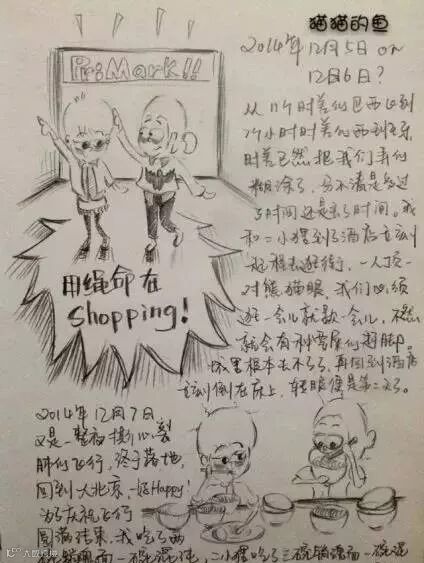 猫猫的鱼
2014年12月5日 or
12月6日？
PriMark!!
从11个时差的巴西回到
7个小时时差的西班牙，
时差已然把我们弄的
糊涂了，分不清是多过
了时间还是少了时间。我
和二小狸到了酒店立刻
起程去逛街，一人顶一
对熊猫眼 我们必须
逛一会儿就歇一会儿，不然
就会有种
城里根本去不了了，再回到酒店
立刻倒在床上，转眼便是第二天了。
用绳命在
shopping!
2014年12月7日
又是一整夜撕心裂
肺的飞行，终于落地，
回到大北京，好Happy!
为了庆祝飞行
圆满结束，我吃了两
面一碗混沌，二小狸吃了三碗 面一碗混